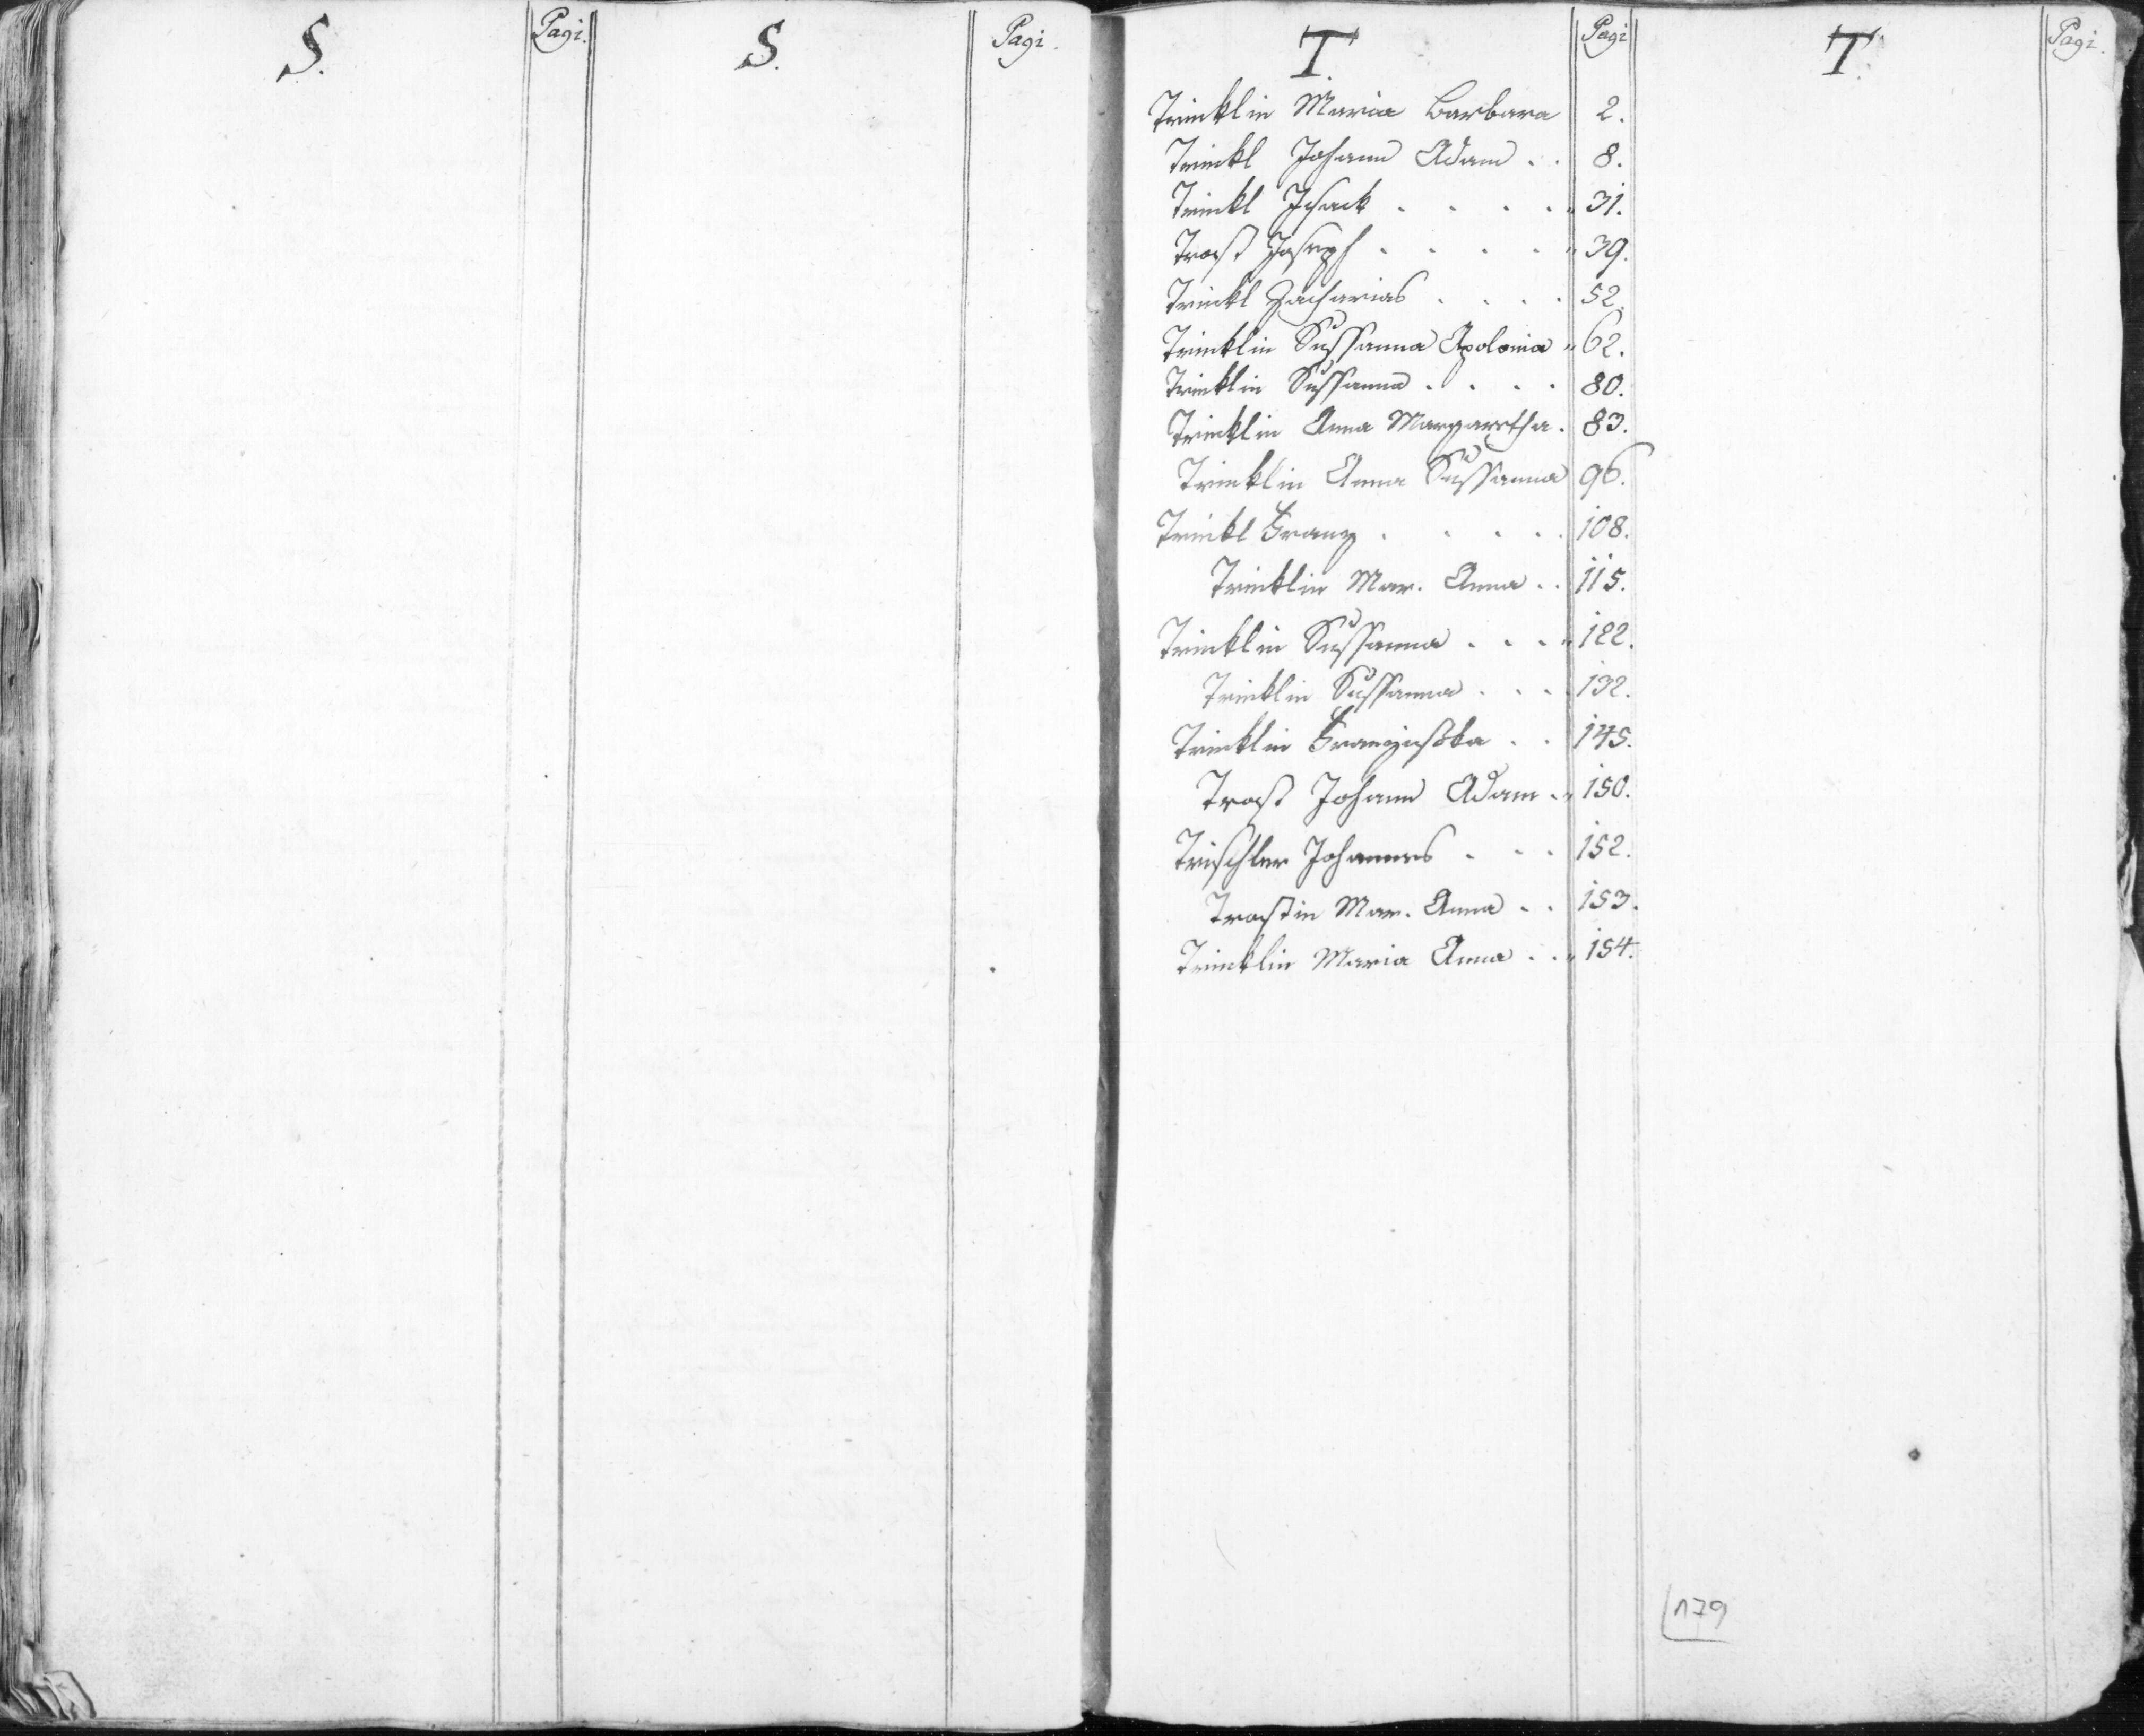 S. Pagi. S. Pagi.
T. Pagi T. Pagi.
Trinklin Maria Barbara 2.
Trinkl Johann Adam . . 8.
Trinkl Isack . . . . " 31.
Trost Joseph . . . . " 39.
Trinkl Zacharias . . . . 52.
Trinklin Sussanna Apolonia " 62.
Trinklin Sussanna . . . . 80.
Trinklin Anna Margaretha . 83.
Trinklin Anna Sussanna 96.
Trinkl Franz . . . . . 108.
Trinklin Mar. Anna . . 115.
Trinklin Sussanna . . . " 122.
Trinklin Sussanna . . . 132.
Trinklin Franzisska . . 145.
Trost Johann Adam . " 150.
Trischler Johannes . . . 152.
Trostin Mar. Anna . . 153.
Trinklin Maria Anna . . " 154.
179